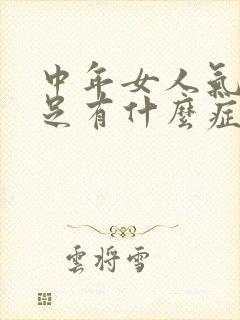 中年女人氣
足有什麼症
雲將雪